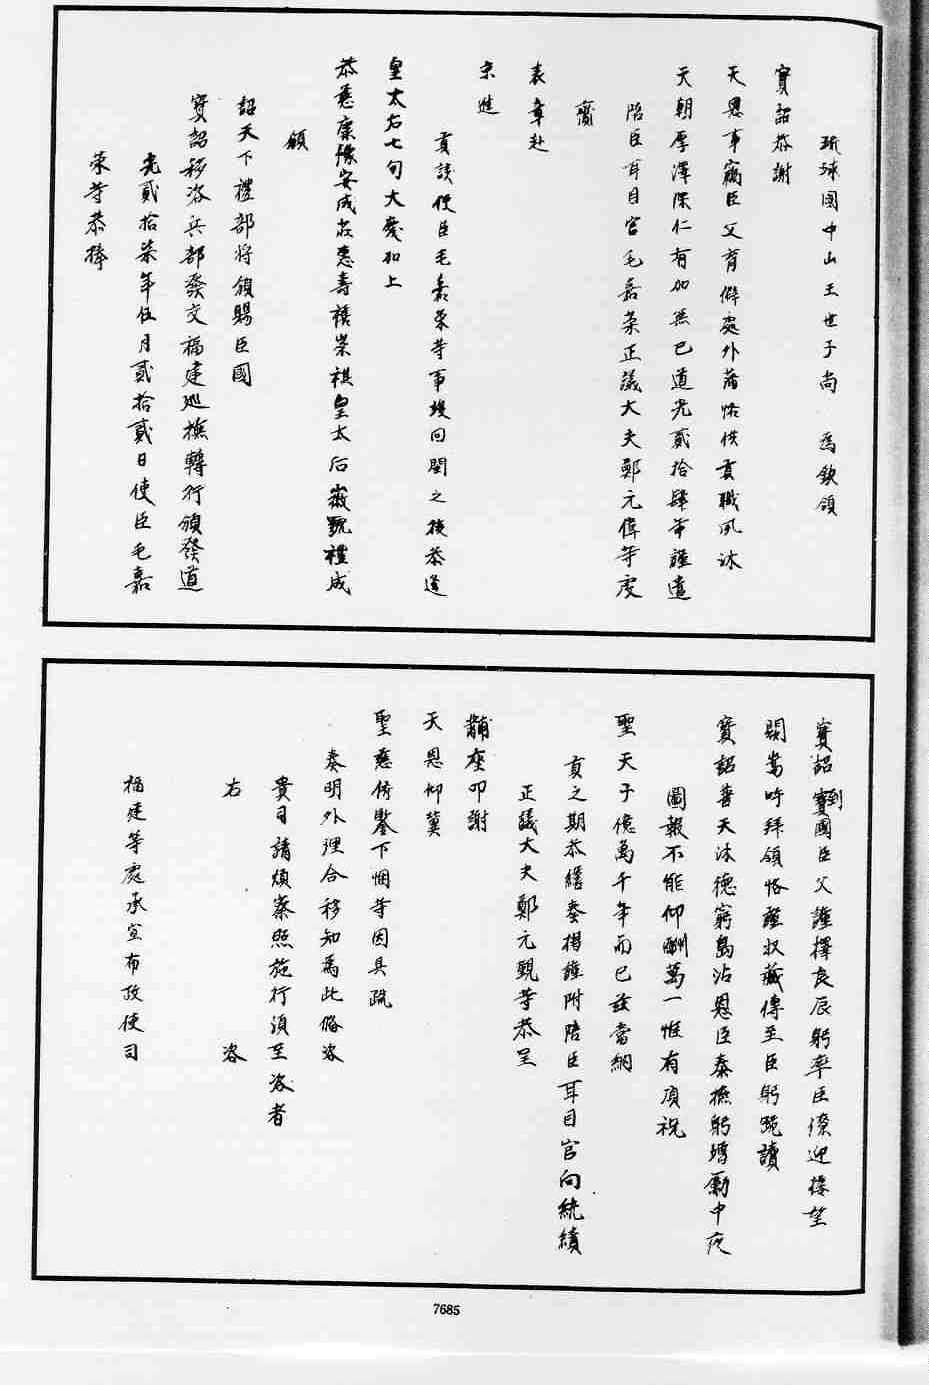 琉球國中山王世子尚 爲欽領
寶詔恭謝
天恩事竊臣父育僻處外藩恪供貢職夙沐
天朝厚澤深仁有加無已道光貳拾肆年謹遣
陪臣耳目官毛嘉榮正議大夫鄭元偉等虔
齎
表章赴
京進
貢該使臣毛嘉榮等事竣回閩之後恭逢
皇太后七旬大慶加上
恭慈康豫安成莊惠壽禧崇祺皇太后徽號禮成
頒
詔天下禮部將頒賜臣國
寶詔移咨兵部發交福建巡撫轉行頒發道
光貳拾柒年伍月貳拾貳日使臣毛嘉
榮等恭捧
寶詔到國臣父謹擇良辰躬率臣僚迎接望
闕嵩呼拜領恪謹收藏傳至臣躬跪讀
寶詔普天沐德窮島沾恩臣泰撫躬增勵中夜
圖報不能仰酬萬一惟有頂祝
聖天子億萬千年而已茲當納
貢之期恭繕奏摺謹附陪臣耳目官向統績
正議大夫鄭元覲等恭呈
黼座叩謝
天恩仰冀
聖慈俯鑒下悃等因具疏
奏明外理合移知爲此備咨
貴司請煩察照施行須至咨者
右 咨
福建等處承宣布政使司
7685